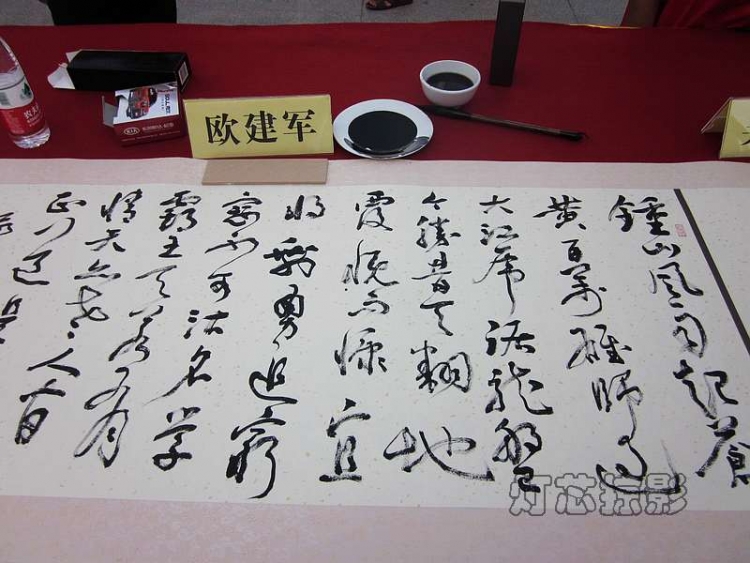 欧建军
鍾山风雨起蒼
黄百万雄师过
大江虎踞龙盘
今胜昔天翻地
覆慨而慷宜
将剩勇追穷
寇不可沽名学
霸王天若有
情天亦老人间
正道是
KIA
灯芯掠影